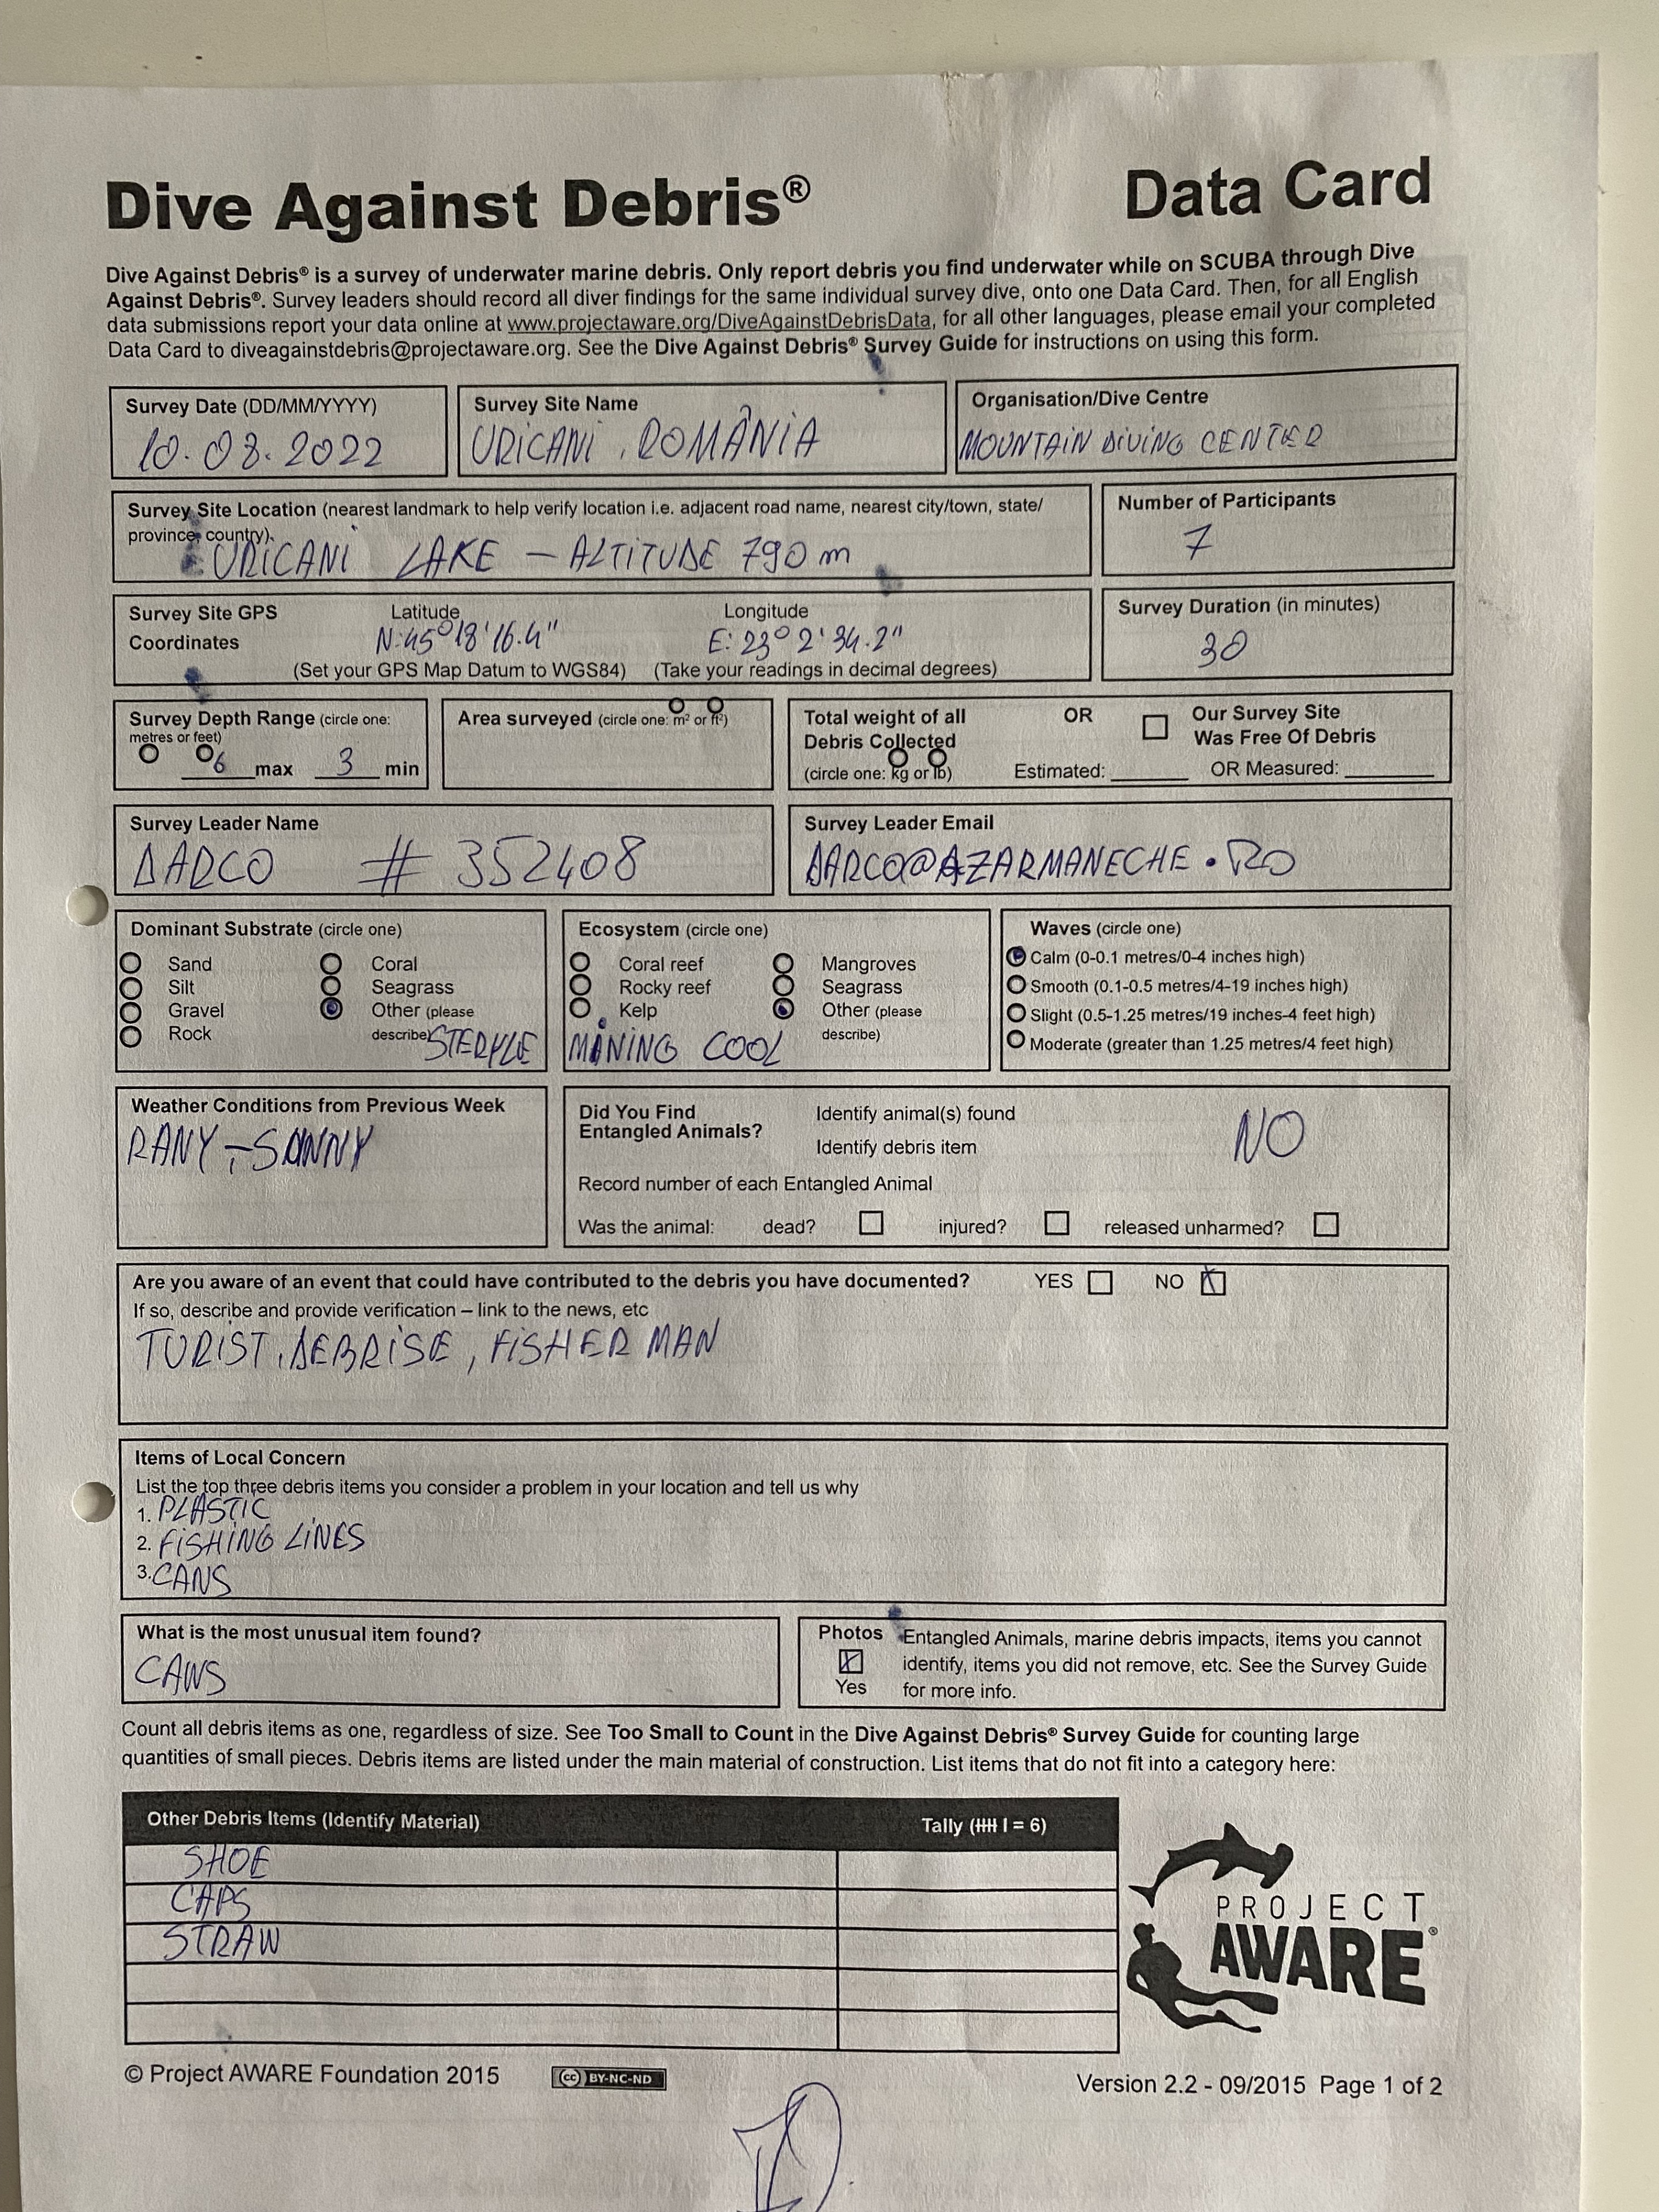 Dive Against Debris®
Data Card
Dive Against Debris® is a survey of underwater marine debris. Only report debris you find underwater while on SCUBA through Dive
Against Debris®. Survey leaders should record all diver findings for the same individual survey dive, onto one Data Card. Then, for all English
data submissions report your data online at www.projectaware.org/DiveAgainstDebrisData, for all other languages, please email your completed
Data Card to diveagainstdebris@projectaware.org. See the Dive Against Debris® Survey Guide for instructions on using this form.
Survey Date (DD/MM/YYYY)
10.08.2022
Survey Site Name
URICANI, ROMÂNIA
Organisation/Dive Centre
MOUNTAIN DIVING CENTER
Survey Site Location (nearest landmark to help verify location i.e. adjacent road name, nearest city/town, state/
province, country).
URICANI LAKE – ALTITUDE 790 m
Number of Participants
7
Survey Site GPS
Coordinates
Latitude
N:45°18'16.4"
Longitude
E: 23° 2' 34.2"
(Set your GPS Map Datum to WGS84) (Take your readings in decimal degrees)
Survey Duration (in minutes)
30
Survey Depth Range (circle one:
metres or feet)
6 max 3 min
Area surveyed (circle one: m² or ft²)
Total weight of all
Debris Collected
(circle one: kg or lb)
OR
Our Survey Site
Was Free Of Debris
Estimated: ______ OR Measured: ______
Survey Leader Name
DARCO # 352408
Survey Leader Email
DARCO@AZARMANECHE.RO
Dominant Substrate (circle one)
Sand Coral
Silt Seagrass
Gravel Other (please
Rock describe) STERYLE
Ecosystem (circle one)
Coral reef Mangroves
Rocky reef Seagrass
Kelp Other (please
describe)
MINING COOL
Waves (circle one)
Calm (0-0.1 metres/0-4 inches high)
Smooth (0.1-0.5 metres/4-19 inches high)
Slight (0.5-1.25 metres/19 inches-4 feet high)
Moderate (greater than 1.25 metres/4 feet high)
Weather Conditions from Previous Week
RANY, – SUNNY
Did You Find
Entangled Animals?
Identify animal(s) found
Identify debris item
NO
Record number of each Entangled Animal
Was the animal: dead? injured? released unharmed?
Are you aware of an event that could have contributed to the debris you have documented? YES NO
If so, describe and provide verification – link to the news, etc
TURIST, DEBRISE, FISHER MAN
Items of Local Concern
List the top three debris items you consider a problem in your location and tell us why
1. PLASTIC
2. FISHING LINES
3. CANS
What is the most unusual item found?
CANS
Photos
Yes
Entangled Animals, marine debris impacts, items you cannot
identify, items you did not remove, etc. See the Survey Guide
for more info.
Count all debris items as one, regardless of size. See Too Small to Count in the Dive Against Debris® Survey Guide for counting large
quantities of small pieces. Debris items are listed under the main material of construction. List items that do not fit into a category here:
Other Debris Items (Identify Material) Tally (IIII I = 6)
SHOE
CAPS
STRAW
PROJECT
AWARE®
© Project AWARE Foundation 2015
cc BY-NC-ND
Version 2.2 - 09/2015 Page 1 of 2